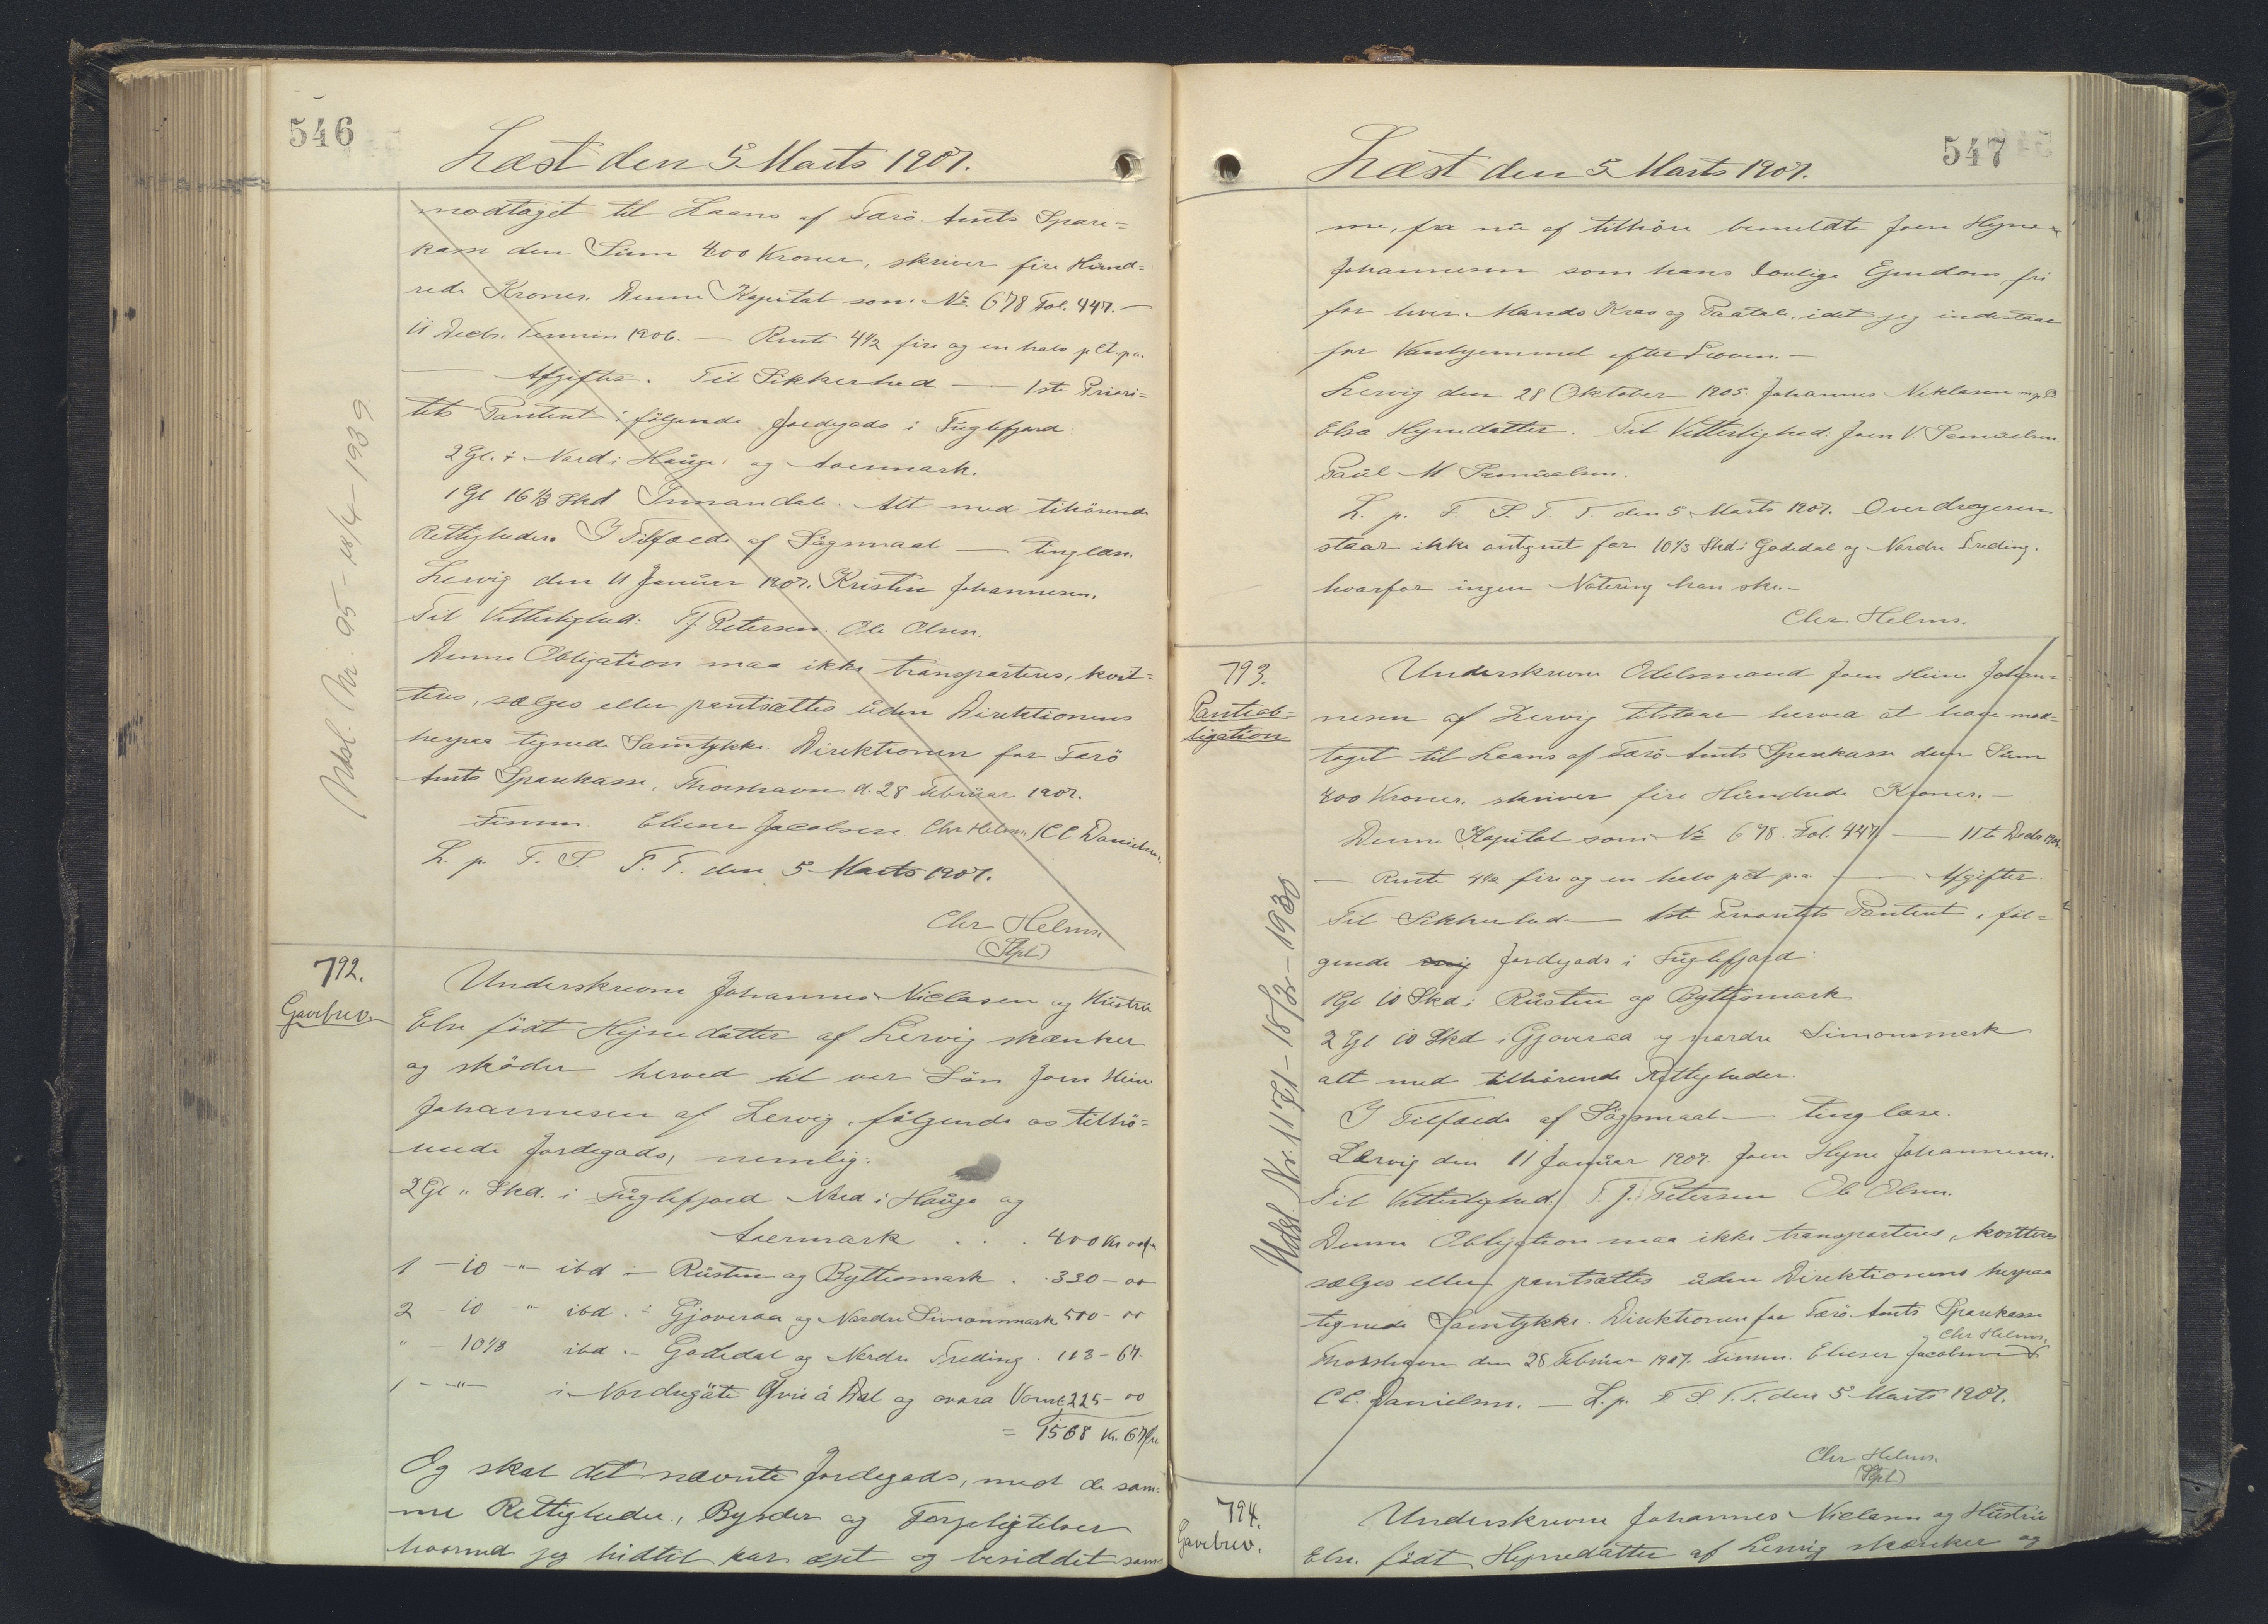 546
Læst den 5 Marts 1907.
modtaget til Laans af Færö Amts Spare=
kasse den Sum 400 Kroner, skriver fire Hund=
rede Kroner. Denne Kapital som No 678 Fol. 447. —
11 Decbr. Termin 1906. — Rente 4½ fire og en halv pCt. p.a.
— Afgifter. Til Sikkerhed — 1ste Priori=
tets Panteret i følgende Jordegods i Fuglefjord
2 Gl. i Nord i Hauge og Aaermark.
1 Gl 16⅔ Skd Innandal. Alt med tilhörende
Rettigheder. I Tilfælde af Sögsmaal — tinglæs.
Lervig den 11 Januar 1907. Kristin Johannesen.
Til Vitterlighed: T J Petersen. Ole Olsen.
Denne Obligation maa ikke transporteres, kvit=
teres, sælges eller pantsættes uden Direktionens
herpaa tegnede Samtykke. Direktionen for Færö
Amts Sparekasse, Thorshavn d. 28 Februar 1907.
Finsen. Elieser Jacobsen. Chr Helms / C C Danielsen.
L. p. F. S. T. T. den 5 Marts 1907.
Chr Helms
(Stpl)
Udsl. Nr. 95 - 18/4 - 1939
792.
Gavebrev.
Underskrevne Johannes Niclasen og Hustru
Else födt Hejnedatter af Lervig skænker
og sköder herved til vor Sön Joen Heine
Johannesen af Lervig, fölgende os tilhö=
rende Jordegods, nemlig:
2 Gl " Skd. i Fuglefjord Nord i Hauge og
Aaermark . . . 400 Kr 00 Ør
1 — 10 — " — ibd — Rusten og Byttesmark . . 330 — 00
2 — 10 — " ibd. — Gjoveraa og Nordre Simonsmark 500 — 00
" — 10⅓ ibd. — Gadedal og Nordre Treding . 113 — 67.
1 — " — i Nordregöte Yvir á Dal og ovara Vorust 225 — 00
= 1568 Kr. 67 Ør
Og skal det nævnte Jordegods, med de sam=
me Rettigheder, Byrder og Forpligtelser
hvormed jeg hidtil har ejet og besiddet sam=
547
Læst den 5 Marts 1907.
me, fra nu af tilhöre bemeldte Joen Hejne
Johannesen som hans lovlige Ejendom, fri
for hver Mands Krav og Paatale, idet jeg indestaar
for Vanhjemmel efter Loven. —
Lervig den 28 Oktober 1905. Johannes Niklasen m.p.P.
Elsa Hejnedatter. Til Vitterlighed: Joen V Samuelsen
Paul M. Samuelsen.
L. p. F. S. T. T. den 5 Marts 1907. Overdrageren
staar ikke antegnet for 10⅓ Skd i Gadedal og Nordre Treding.
hvorfor ingen Notering kan ske. —
Chr Helms.
793.
Pantiob-
ligation
Underskrevne Odelsmand Joen Heine Johan-
nesen af Lervig tilstaar herved at have mod=
taget til Laans af Færö Amts Sparekasse den Sum
400 Kroner. skriver fire Hundrede Kroner. —
Denne Kapital som No 678 Fol. 447 — 11te Decbr 1906.
— Rente 4½ fire og en halv pCt p.a. — Afgifter.
Til Sikkerhed — 1ste Prioritets Panteret i föl=
gende Jordegods i Fuglefjord:
1 Gl 10 Skd i Rusten og Byttesmark
2 Gl 10 Skd i Gjoveraa og nordre Simonsmark
alt med tilhörende Rettigheder.
I Tilfælde af Sögsmaal — tinglæse.
Lervig den 11 Januar 1907. Joen Hejne Johannesen.
Til Vitterlighed: T. J. Petersen Ole Olsen.
Denne Obligation maa ikke transporteres, kvitteres
sælges eller pantsættes uden Direktionens herpaa
tegnede Samtykke. Direktionen for Færö Amts Sparekasse
Thorshavn den 28 Februar 1907. Finsen. Elieser Jacobsen og Chr Helms.
C C. Danielsen. — L. p. F. S. T. T. den 5 Marts 1907.
Chr Helms.
(Stpl)
Udsl. Nr. 1171 - 18/12 - 1930
794.
Gavebrev.
Underskrevne Johannes Niclasen og Hustru
Else födt Hejnedatter af Lervig skænker og